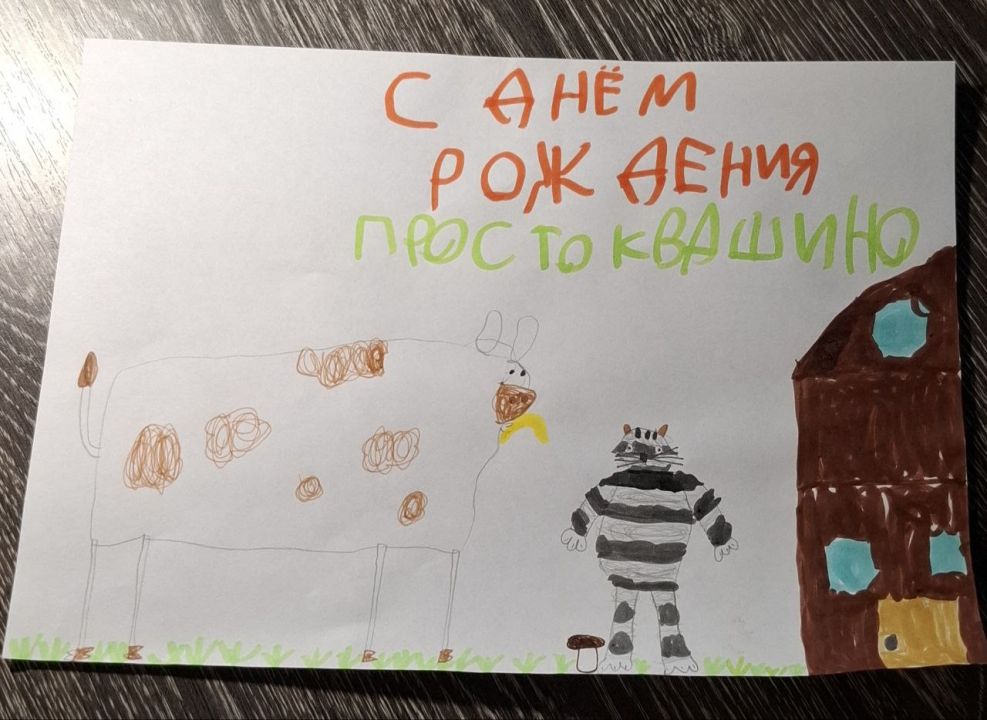 С ДНЁМ
РОЖДЕНИЯ
ПРОСТОКВАШИНО